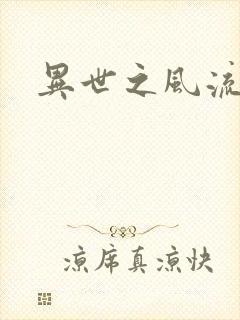 異世之風流
涼席真涼快